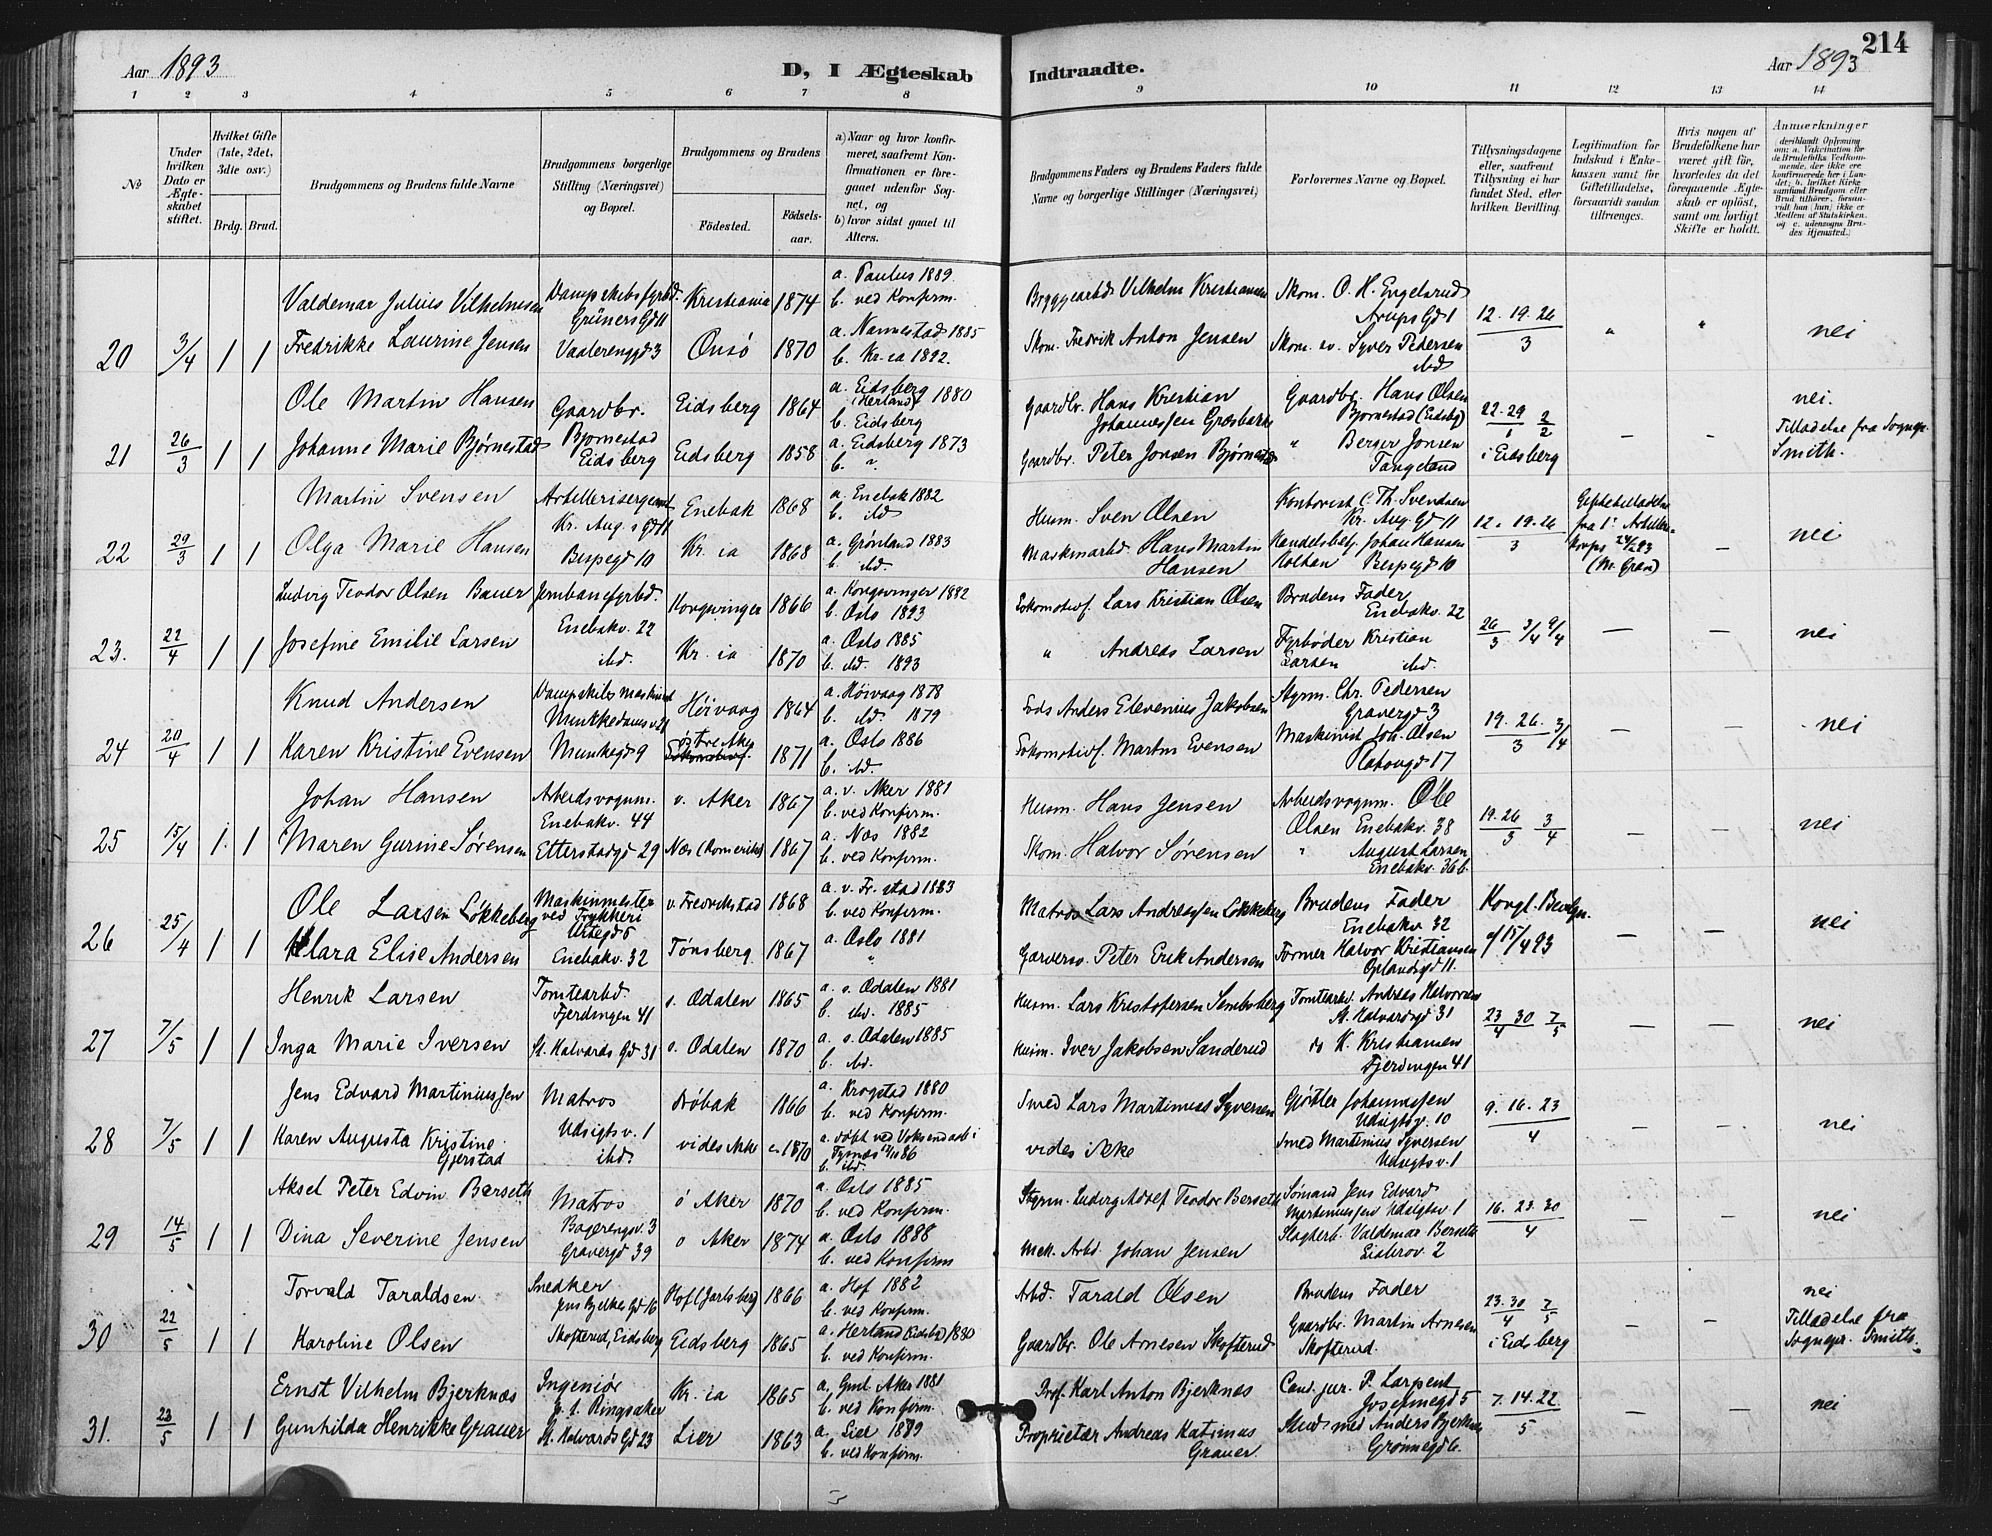 214
Aar 1893
D, I Ægteskab Indtraadte.
Aar 1893
1 2 3 4 5 6 7 8 9 10 11 12 13 14
№
Under hvilken Dato er Ægteskabet stiftet.
Hvilket Gifte (1ste, 2det, 3die osv.)
Brdg. Brud.
Brudgommens og Brudens fulde Navne
Brudgommens borgerlige Stilling (Næringsvei) og Bopæl.
Brudgommens og Brudens
Fødested.
Fødselsaar.
a) Naar og hvor konfirmeret, saafremt Konfirmationen er foregaaet udenfor Sognet, og
b) hvor sidst gaaet til Alters.
Brudgommens Faders og Brudens Faders fulde Navne og borgerlige Stillinger (Næringsvei)
Forlovernes Navne og Bopæl.
Tillysningsdagene eller, saafremt Tillysning ei har fundet Sted, efter hvilken Bevilling.
Legitimation for Indskud i Enkekassen samt for Giftetilladelse, forsaavidt saadan tiltrænges.
Hvis nogen af Brudefolkene har været gift før, hvorledes da det foregaaende Ægteskab er opløst, samt om lovligt Skifte er holdt.
Anmærkninger
Valdemar Julius Vilhelmsen Dampskibsfyrbd. Grünersgd 11 Kristiania 1874 a. Paulus 1889 b. ved Konfirm. Bryggearbd. Vilhelm Kristiansen Skom. O. H. Engelsrud Arupsgd 1 12. 19. 26
20 3/4 1 1 Fredrikke Laurine Jensen Vaalerenggd 3 Onsö 1870 a. Nannestad 1885 b. Kr.ia 1892. Skom. Fredrik Anton Jensen Skom. sv. Syver Pedersen ibd 3 " " nei
Ole Martin Hansen Gaardbr. Eidsberg 1864 a. Eidsberg (Herland) 1880 b. Eidsberg Gaardbr. Hans Kristian Johannessen Gaardbr. Hans Olsen Bjørnestad (Eidsbg) 22. 29 2 nei.
21 26/3 1 1 Johanne Marie Bjørnestad Bjornestad Eidsberg Eidsberg 1858 a. Eidsberg 1873 b. " Gaardbr. Peter Jonsen Bjørnestad " Berger Jonsen Tangeland 1 2 i Eidsberg – – Tilladelse fra Sognepr. Smith.
Martin Svensen Artillerisergeant Kr. Aug.s Gd 11 Enebak 1868 a. Enebak 1882 b. ibd Husm. Sven Olsen Kontorist C. Th. Svendsen Kr. Aug. Gd 11 12. 19. 26 Giftetilladelse
22 29/3 1 1 Olga Marie Hansen Bispegd 10 Kr. ia 1868 a. Grønland 1883 b. ibd. Maskinarbd. Hans Martin Hansen Handelsbetj. Johan Hansen Holthan Bispegd 10 3 fra 1. Artilleri Korps – nei
Ludvig Teodor Olsen Bauer Jernbanefyrbd. Enebakv. 22 Kongsvinger 1866 a. Kongsvinger 1882 b. Oslo 1893 Lokomotivf. Lars Kristian Olsen Brudens Fader Enebakv. 22
23. 22/4 1 1 Josefine Emilie Larsen ibd. Kr. ia 1870 a. Oslo 1885 b. ibd. 1893 " Andreas Larsen Fyrbøder Kristian Larsen ibd. 26/3 3/4 9/4 – – nei
Knud Andersen Dampskibs maskinist Munkedamsv. 21 Höivaag 1864 a. Höivaag 1878 b. ibd 1879 Anders Elevenius Jakobsen Styrm. Chr. Pedersen Gravergd 3 19. 26. 3
24 20/4 1 1 Karen Kristine Evensen Munkegd 9 östre Aker 1871 a. Oslo 1886 b. ibd. Lokomotivf. Martin Evensen Maskinist Joh. Olsen Platougd 17 3 4 – – nei
Johan Hansen Arbeidsvognm. Enebakv. 44 v. Aker 1867 a. v. Aker 1881 b. ved Konfirm. Husm. Hans Jensen Arbeidsvognm. Ole Olsen Enebakv. 38 19. 26 3
25 15/4 1. 1 Maren Gurine Sørensen Etterstadgd 29 Næs (Romerike) 1867 a. Næs 1882 b. ved Konfirm. Skom. Halvor Sørensen " August Larsen Enebakv. 36b 3 4 – – nei
Ole Larsen Løkkeberg Maskinmester ved Trykkeri Urtegd 5 v. Fredrikstad 1868 a. v. Fr. stad 1883 b. ved Konfirm. Matros Lars Andreassen Løkkeberg Brudens Fader Enebakv. 32 Kongl. Bevilgn.
26 25/4 1 1 Klara Elise Andersen Enebakv. 32 Tønsberg 1867 a. Oslo 1881 " Garversv. Peter Erik Andersen Former Halvor Kristiansen Oplandsgd 11. af 15/4 93 – – nei
Henrik Larsen Tomtearbd. Fjerdingen 41 s. Odalen 1865 a. s. Odalen 1881 b. ibd. 1885 Husm. Lars Kristofersen Sembsberg Tomtearb. Andreas Halvorsen St. Halvardsgd 31 23 30 7
27 7/5 1 1 Inga Marie Iversen St. Halvards Gd 31 s. Odalen 1870 a. s. Odalen 1885 b. ibd. Husm. Iver Jakobsen Sanderud do K. Kristiansen Fjerdingen 41 4 5 – – nei
Jens Edvard Martiniussen Matros Udsigtsv. 1 Drøbak 1866 a. Krogstad 1880 b. ved Konfirm. Smed Lars Martinius Syversen Gjørtler Johannessen Udsigtsv. 10 9. 16. 23
28 7/5 1 1 Karen Augusta Kristine Gjerstad ibd. vides ikke c. 1870 a. døbt ved Voksendaab i 86 b. ibd. vides ikke Smed Martinius Syversen Udsigtsv. 1 4 – – nei
Aksel Peter Edvin Berseth Matros Bøgerengsv. 3 ö Aker 1870 a. Oslo 1885 b. ved Konfirm. Styrm. Ludvig Adolf Teodor Berseth Sömand Jens Edvard Martiniussen Udsigtsv 1 16. 23. 30
29 14/5 1 1 Dina Severine Jensen Gravergd 39 o Aker 1874 a. Oslo 1888 b. ved Konfirm Mek. Arbd. Johan Jensen Slagterb. Valdemar Berseth 2 4 – – nei
Torvald Taraldsen Snedker Jens Bjelkes Gd 16 Hof (Jarlsberg) 1866 a. Hof 1882 b. ved Konfirm. Arbd. Tarald Olsen Brudens Fader 23. 30 7 nei
30 22/5 1 1 Karoline Olsen Skofterud, Eidsberg Eidsberg 1865 a. Herland Eidsbg 1880 b. ved Konfirm. Gaardbr. Ole Arnesen Skofterud Gaardbr. Martin Arnesen Skofterud. 4 5 i Eidsberg – – Tilladelse fra Sognepr. Smith.
Ernst Vilhelm Bjerknæs Ingeniør Ringsaker Kr. ia 1865 a. Gml. Aker 1881 b. ved Konfirm. Prof. Karl Anton Bjerknæs Cand. jur. P. Larpent Josefinegd 5 7. 14. 22
31. 23/5 1 1 Gunhilda Henrikke Grauer St. Halvards Gd 23 Lier 1863 a. Lier 1879 b. ved Konfirm. Proprietær Andreas Katinus Grauer. Stud. med Anders Bjerknæs Grønnegd 6. 5 – – nei